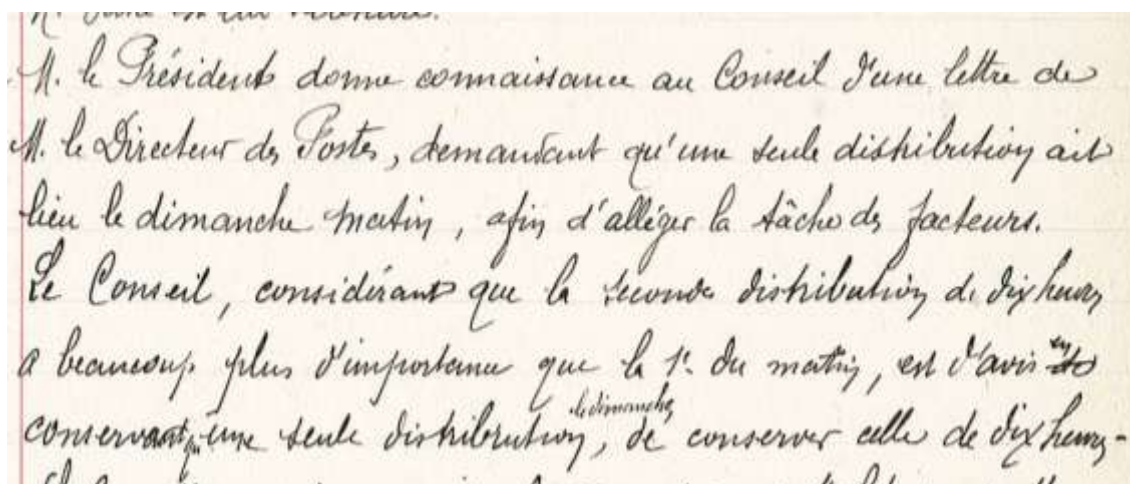 M. le Président donne connaissance au Conseil d'une lettre de
M. le Directeur des Postes, demandant qu'une seule distribution ait
lieu le dimanche matin, afin d'alléger la tâche des facteurs.
Le Conseil, considérant que la seconde distribution de dix heures
a beaucoup plus d'importance que la 1e du matin, est d'avis en
conservant qu'une seule distribution, le dimanche, de conserver celle de dix heures-